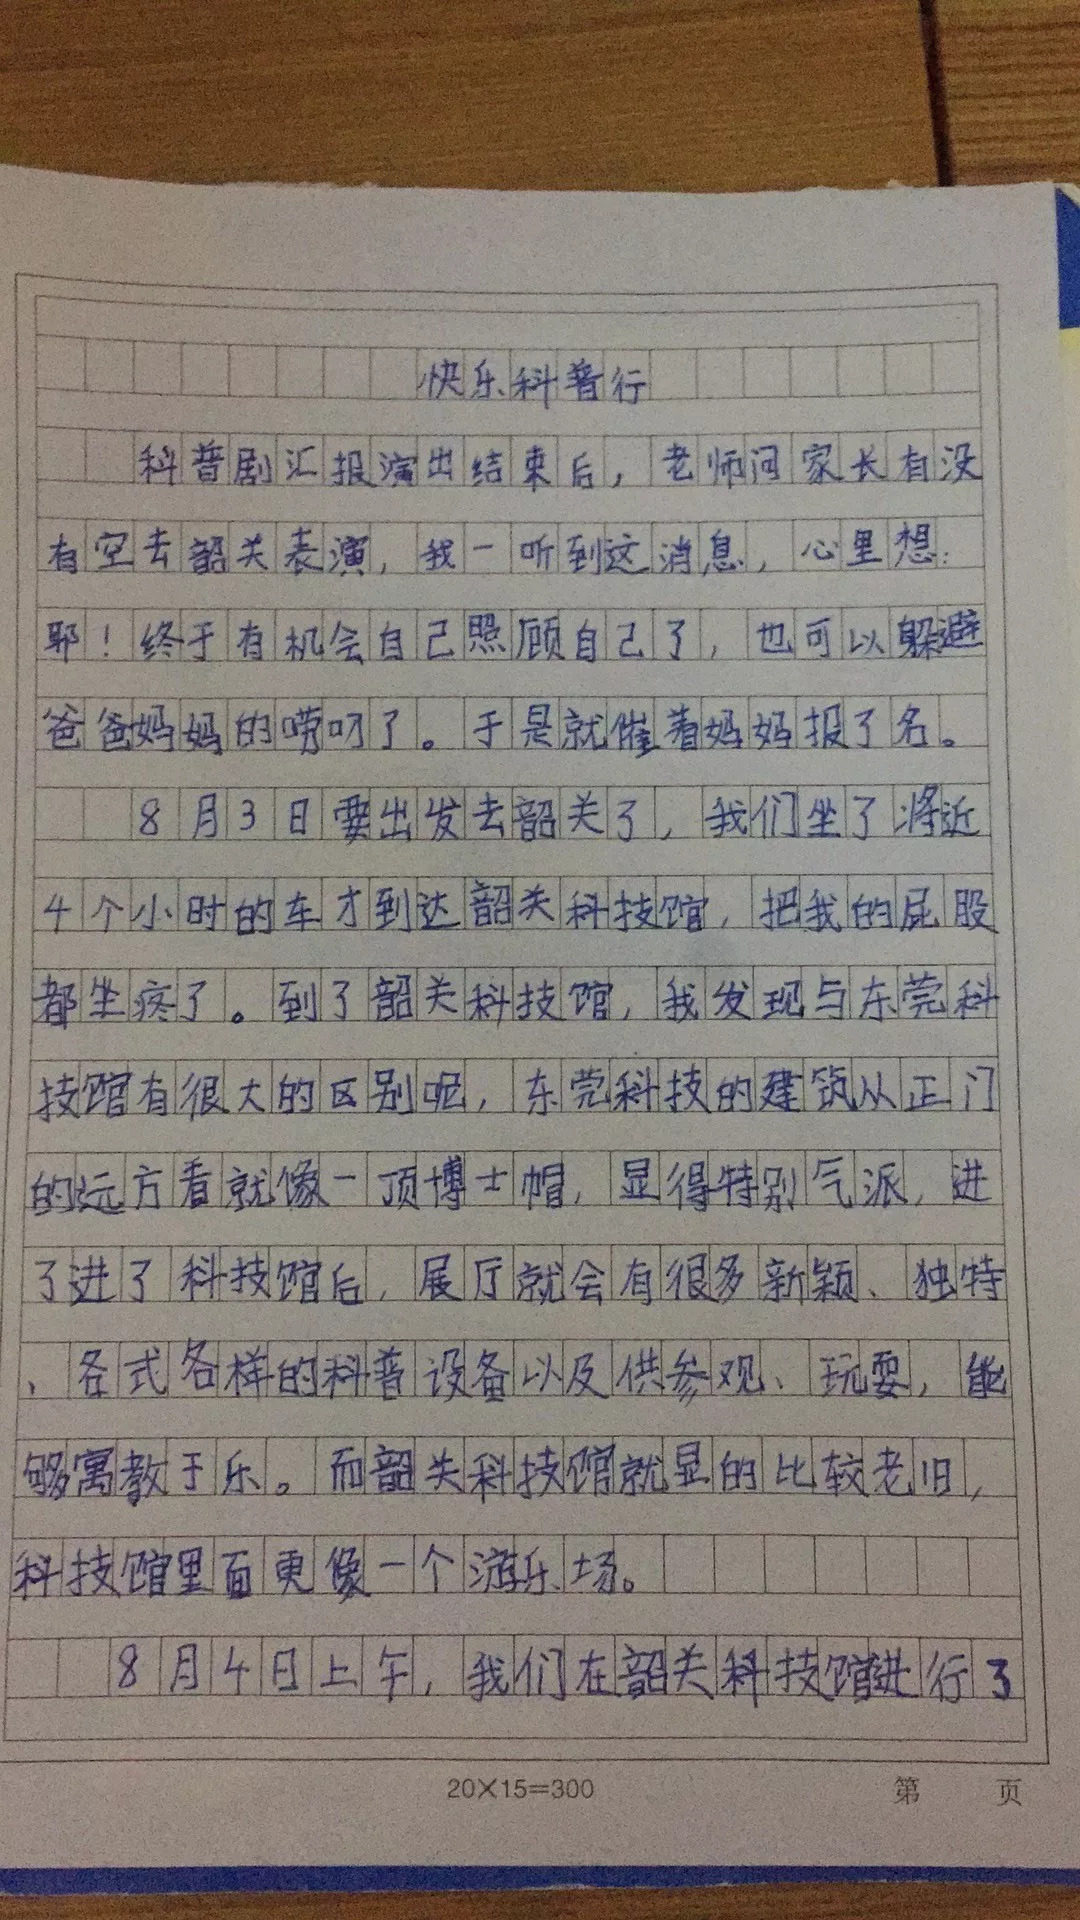 快乐科普行
科普剧汇报演出结束后，老师问家长有没
有空去韶关表演，我一听到这消息，心里想：
耶！终于有机会自己照顾自己了，也可以躲避
爸爸妈妈的唠叨了。于是就催着妈妈报了名。
8月3日要出发去韶关了，我们坐了将近
4个小时的车才到达韶关科技馆，把我的屁股
都坐疼了。到了韶关科技馆，我发现与东莞科
技馆有很大的区别呢，东莞科技的建筑从正门
的远方看就像一顶博士帽，显得特别气派，进
了进了科技馆后，展厅就会有很多新颖、独特
、各式各样的科普设备以及供参观、玩耍，能
够寓教于乐。而韶关科技馆就显的比较老旧，
科技馆里面更像一个游乐场。
8月4日上午，我们在韶关科技馆进行了
20×15=300
第 页